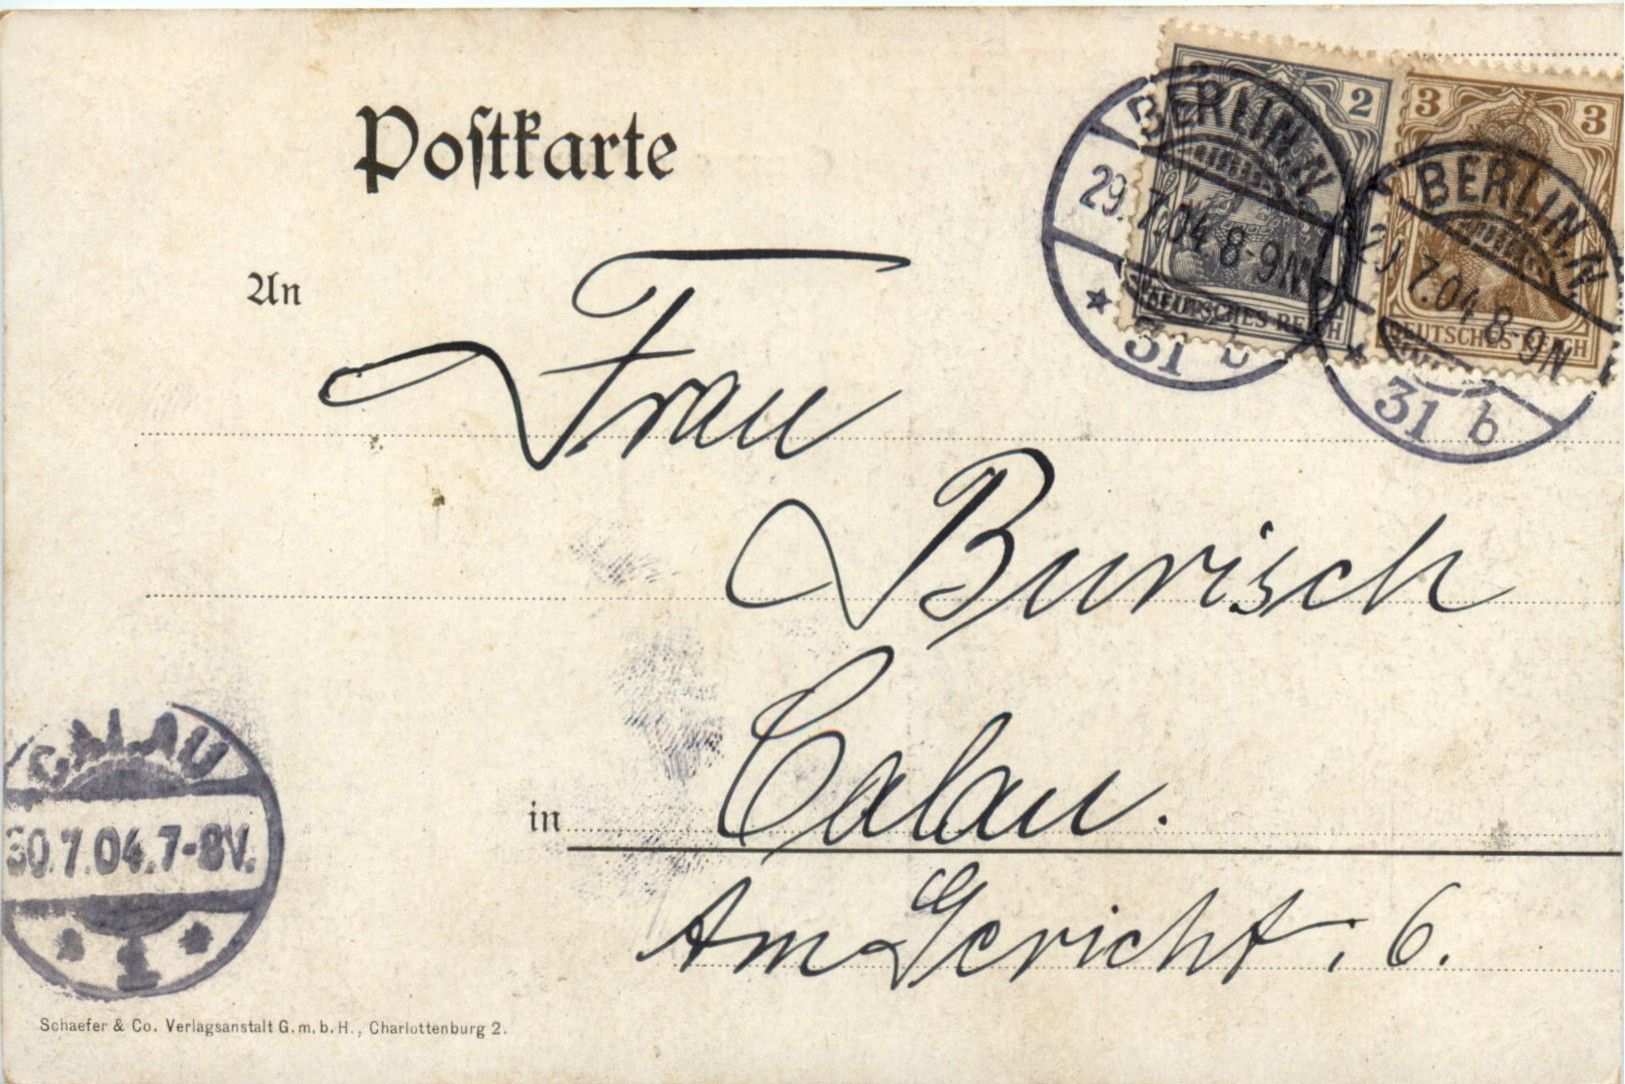 Postkarte
2
3 3
DEUTSCHES REICH
DEUTSCHES REICH
BERLIN.N.
29.7.04.8-9N
* 31 b
BERLIN.N.
29.7.04.8-9N
* 31 b
An
Frau
Burisch
in Calau.
Am Gericht: 6.
CALAU
30.7.04.7-8V.
* 1 *
Schaefer & Co. Verlagsanstalt G.m.b.H., Charlottenburg 2.